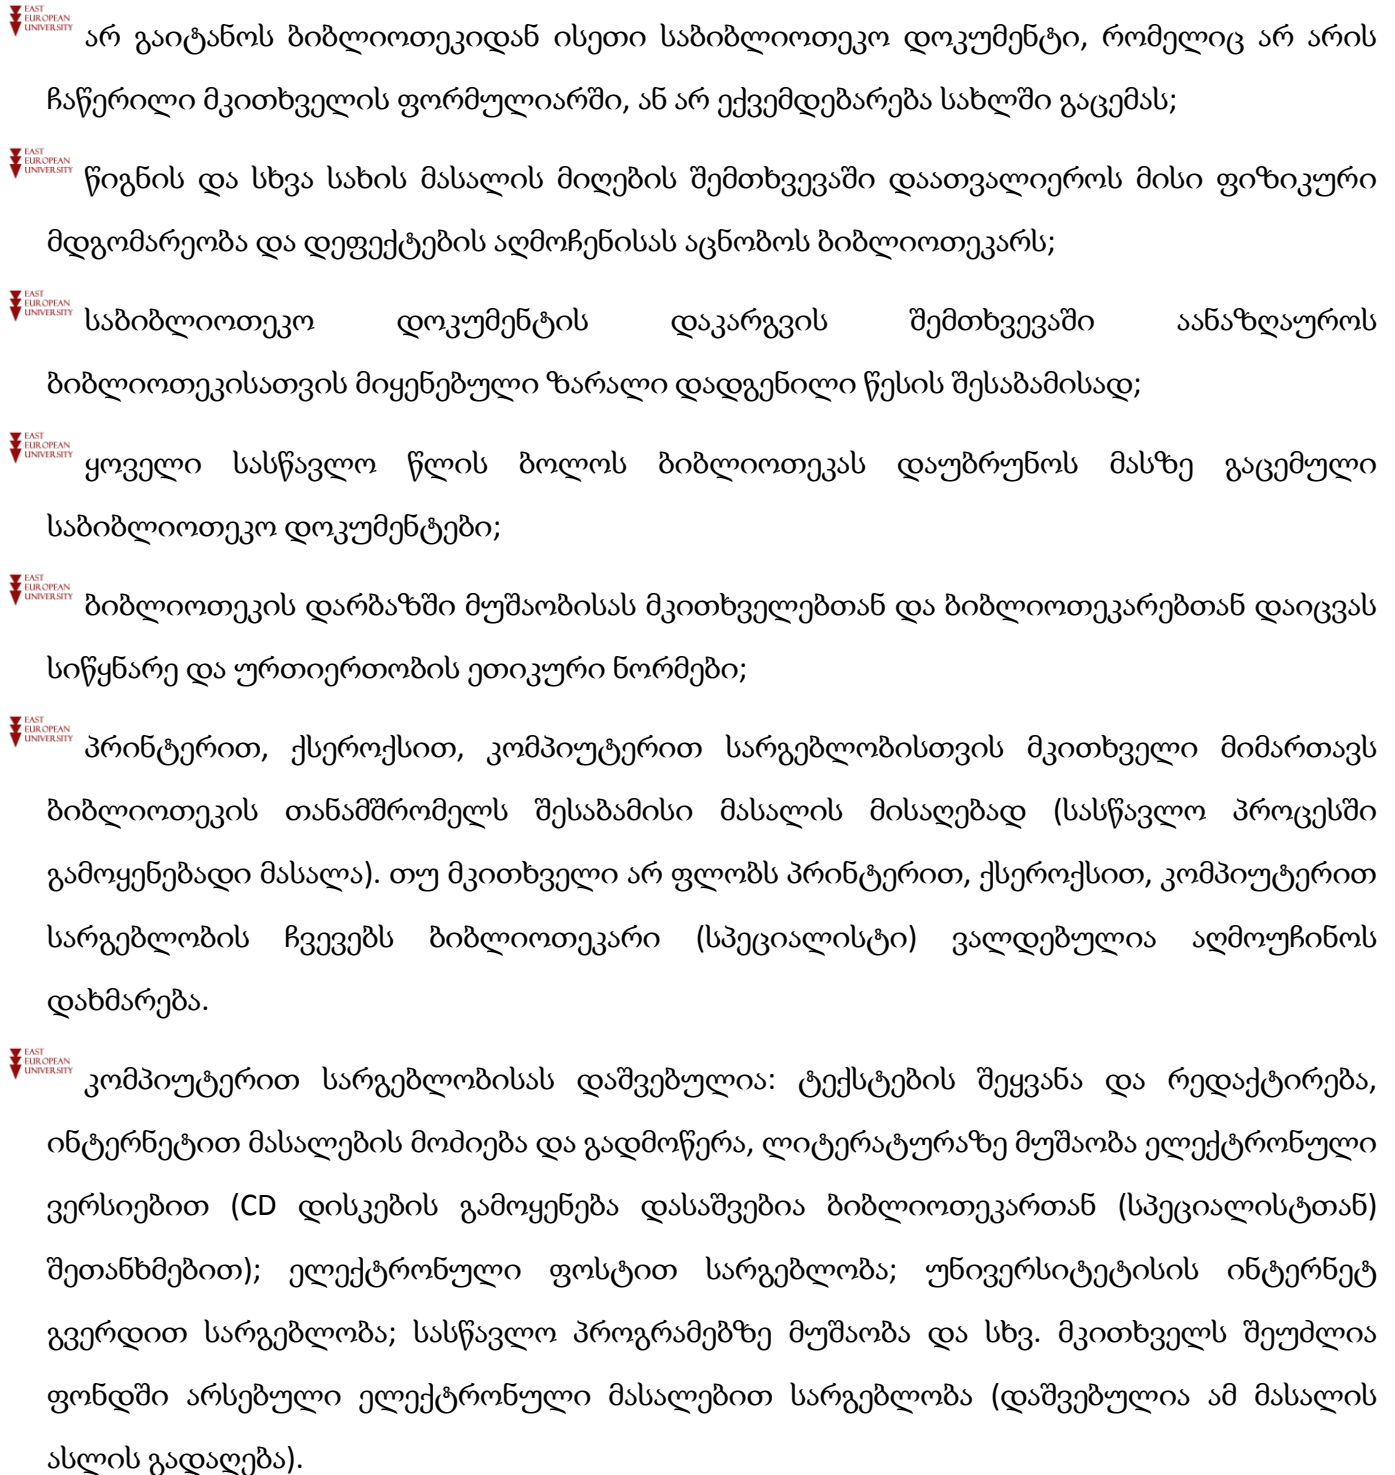 EAST
EUROPEAN
UNIVERSITY
არ გაიტანოს ბიბლიოთეკიდან ისეთი საბიბლიოთეკო დოკუმენტი, რომელიც არ არის
ჩაწერილი მკითხველის ფორმულიარში, ან არ ექვემდებარება სახლში გაცემას;
EAST
EUROPEAN
UNIVERSITY
წიგნის და სხვა სახის მასალის მიღების შემთხვევაში დაათვალიეროს მისი ფიზიკური
მდგომარეობა და დეფექტების აღმოჩენისას აცნობოს ბიბლიოთეკარს;
EAST
EUROPEAN
UNIVERSITY
საბიბლიოთეკო დოკუმენტის დაკარგვის შემთხვევაში აანაზღაუროს
ბიბლიოთეკისათვის მიყენებული ზარალი დადგენილი წესის შესაბამისად;
EAST
EUROPEAN
UNIVERSITY
ყოველი სასწავლო წლის ბოლოს ბიბლიოთეკას დაუბრუნოს მასზე გაცემული
საბიბლიოთეკო დოკუმენტები;
EAST
EUROPEAN
UNIVERSITY
ბიბლიოთეკის დარბაზში მუშაობისას მკითხველებთან და ბიბლიოთეკარებთან დაიცვას
სიწყნარე და ურთიერთობის ეთიკური ნორმები;
EAST
EUROPEAN
UNIVERSITY
პრინტერით, ქსეროქსით, კომპიუტერით სარგებლობისთვის მკითხველი მიმართავს
ბიბლიოთეკის თანამშრომელს შესაბამისი მასალის მისაღებად (სასწავლო პროცესში
გამოყენებადი მასალა). თუ მკითხველი არ ფლობს პრინტერით, ქსეროქსით, კომპიუტერით
სარგებლობის ჩვევებს ბიბლიოთეკარი (სპეციალისტი) ვალდებულია აღმოუჩინოს
დახმარება.
EAST
EUROPEAN
UNIVERSITY
კომპიუტერით სარგებლობისას დაშვებულია: ტექსტების შეყვანა და რედაქტირება,
ინტერნეტით მასალების მოძიება და გადმოწერა, ლიტერატურაზე მუშაობა ელექტრონული
ვერსიებით (CD დისკების გამოყენება დასაშვებია ბიბლიოთეკართან (სპეციალისტთან)
შეთანხმებით); ელექტრონული ფოსტით სარგებლობა; უნივერსიტეტისის ინტერნეტ
გვერდით სარგებლობა; სასწავლო პროგრამებზე მუშაობა და სხვ. მკითხველს შეუძლია
ფონდში არსებული ელექტრონული მასალებით სარგებლობა (დაშვებულია ამ მასალის
ასლის გადაღება).